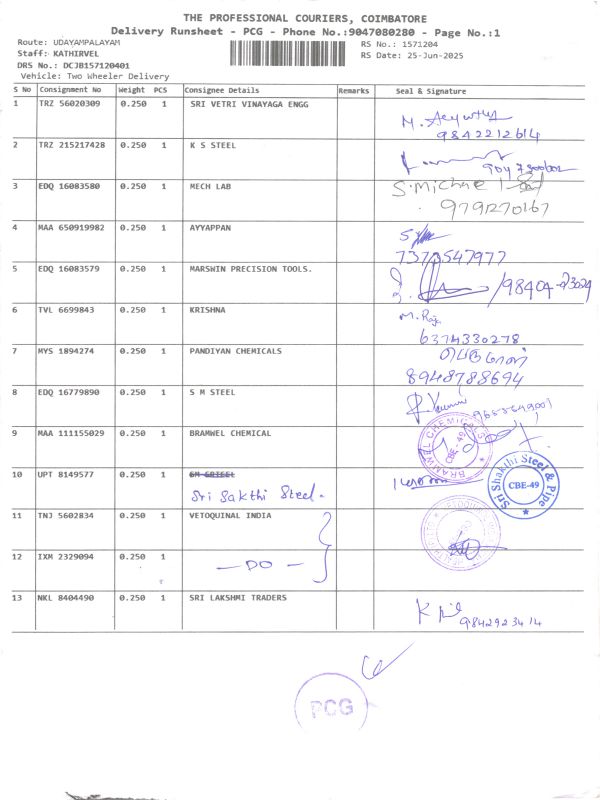 THE PROFESSIONAL COURIERS, COIMBATORE
Delivery Runsheet - PCG - Phone No.:9047080280 - Page No.:1
Route: UDAYAMPALAYAM
RS No.: 1571204
Staff: KATHIRVEL
RS Date: 25-Jun-2025
DRS No.: DCJB157120401
Vehicle: Two Wheeler Delivery
S No Consignment No Weight PCS Consignee Details Remarks Seal & Signature
1 TRZ 56020309 0.250 1 SRI VETRI VINAYAGA ENGG
9842212614
2 TRZ 215217428 0.250 1 K S STEEL
3 EDQ 16083580 0.250 1 MECH LAB S. Michael
9791270167
4 MAA 650919982 0.250 1 AYYAPPAN
7373547977
5 EDQ 16083579 0.250 1 MARSWIN PRECISION TOOLS.
6 TVL 6699843 0.250 1 KRISHNA M. Raja
6374330278
7 MYS 1894274 0.250 1 PANDIYAN CHEMICALS
8948788694
8 EDQ 16779890 0.250 1 S M STEEL
9 MAA 111155029 0.250 1 BRAMWEL CHEMICAL
BRAMWEL CHEMICALS CBE - 49
10 UPT 8149577 0.250 1
Sri Sakthi Steel.
Sri Shakthi Steel & Pipe CBE-49
11 TNJ 5602834 0.250 1 VETOQUINAL INDIA
12 IXM 2329094 0.250 1 — DO —
13 NKL 8404490 0.250 1 SRI LAKSHMI TRADERS
9842923414
PCG